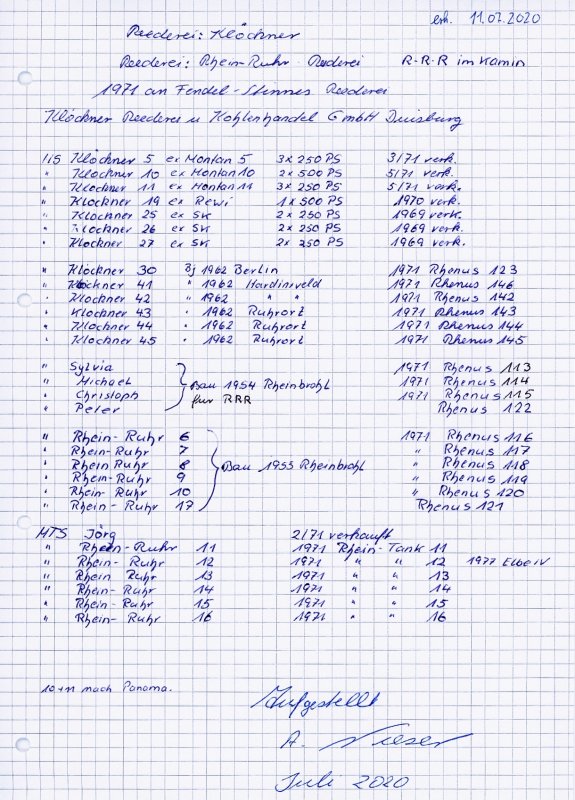 erh. 11.07.2020
Reederei: Klöckner
Reederei: Rhein-Ruhr-Reederei R-R-R im Kamin
1971 an Fendel-Stinnes Reederei
Klöckner Reederei u Kohlenhandel GmbH Duisburg
MS Klöckner 5 ex Montan 5 3x 250 PS 3/71 verk.
" Klöckner 10 ex Montan 10 2x 500 PS 5/71 verk.
" Klöckner 11 ex Montan 11 3x 250 PS 5/71 verk.
" Klöckner 19 ex Rewi 1x 500 PS 1970 verk.
" Klöckner 25 ex SK 2x 250 PS 1969 verk.
" Klöckner 26 ex SK 2x 250 PS 1969 verk.
" Klöckner 27 ex SK 2x 250 PS 1969 verk.
" Klöckner 30 Bj 1962 Berlin 1971 Rhenus 123
" Klöckner 41 " 1962 Hardinxveld 1971 Rhenus 146
" Klöckner 42 " 1962 " " 1971 Rhenus 142
" Klöckner 43 " 1962 Ruhrort 1971 Rhenus 143
" Klöckner 44 " 1962 Ruhrort 1971 Rhenus 144
" Klöckner 45 " 1962 Ruhrort 1971 Rhenus 145
" Sylvia 1971 Rhenus 113
" Michael Bau 1954 Rheinbrohl 1971 Rhenus 114
" Christoph für RRR 1971 Rhenus 115
" Peter Rhenus 122
" Rhein-Ruhr 6 1971 Rhenus 116
" Rhein-Ruhr 7 " Rhenus 117
" Rhein Ruhr 8 Bau 1955 Rheinbrohl " Rhenus 118
" Rhein-Ruhr 9 " Rhenus 119
" Rhein-Ruhr 10 " Rhenus 120
" Rhein-Ruhr 17 Rhenus 121
MTS Jörg 2/71 verkauft
" Rhein-Ruhr 11 1971 Rhein-Tank 11
" Rhein-Ruhr 12 1971 " " 12 1977 Elbe IV
" Rhein Ruhr 13 1971 " " 13
" Rhein-Ruhr 14 1971 " " 14
" Rhein-Ruhr 15 1971 " " 15
" Rhein-Ruhr 16 1971 " " 16
10+11 nach Panama.
Aufgestellt
A. Nieser
Juli 2020